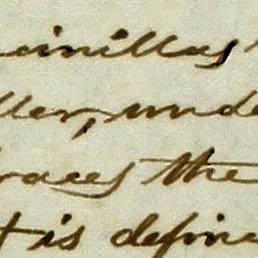 ainillas
ller, unde
braces the
t is define